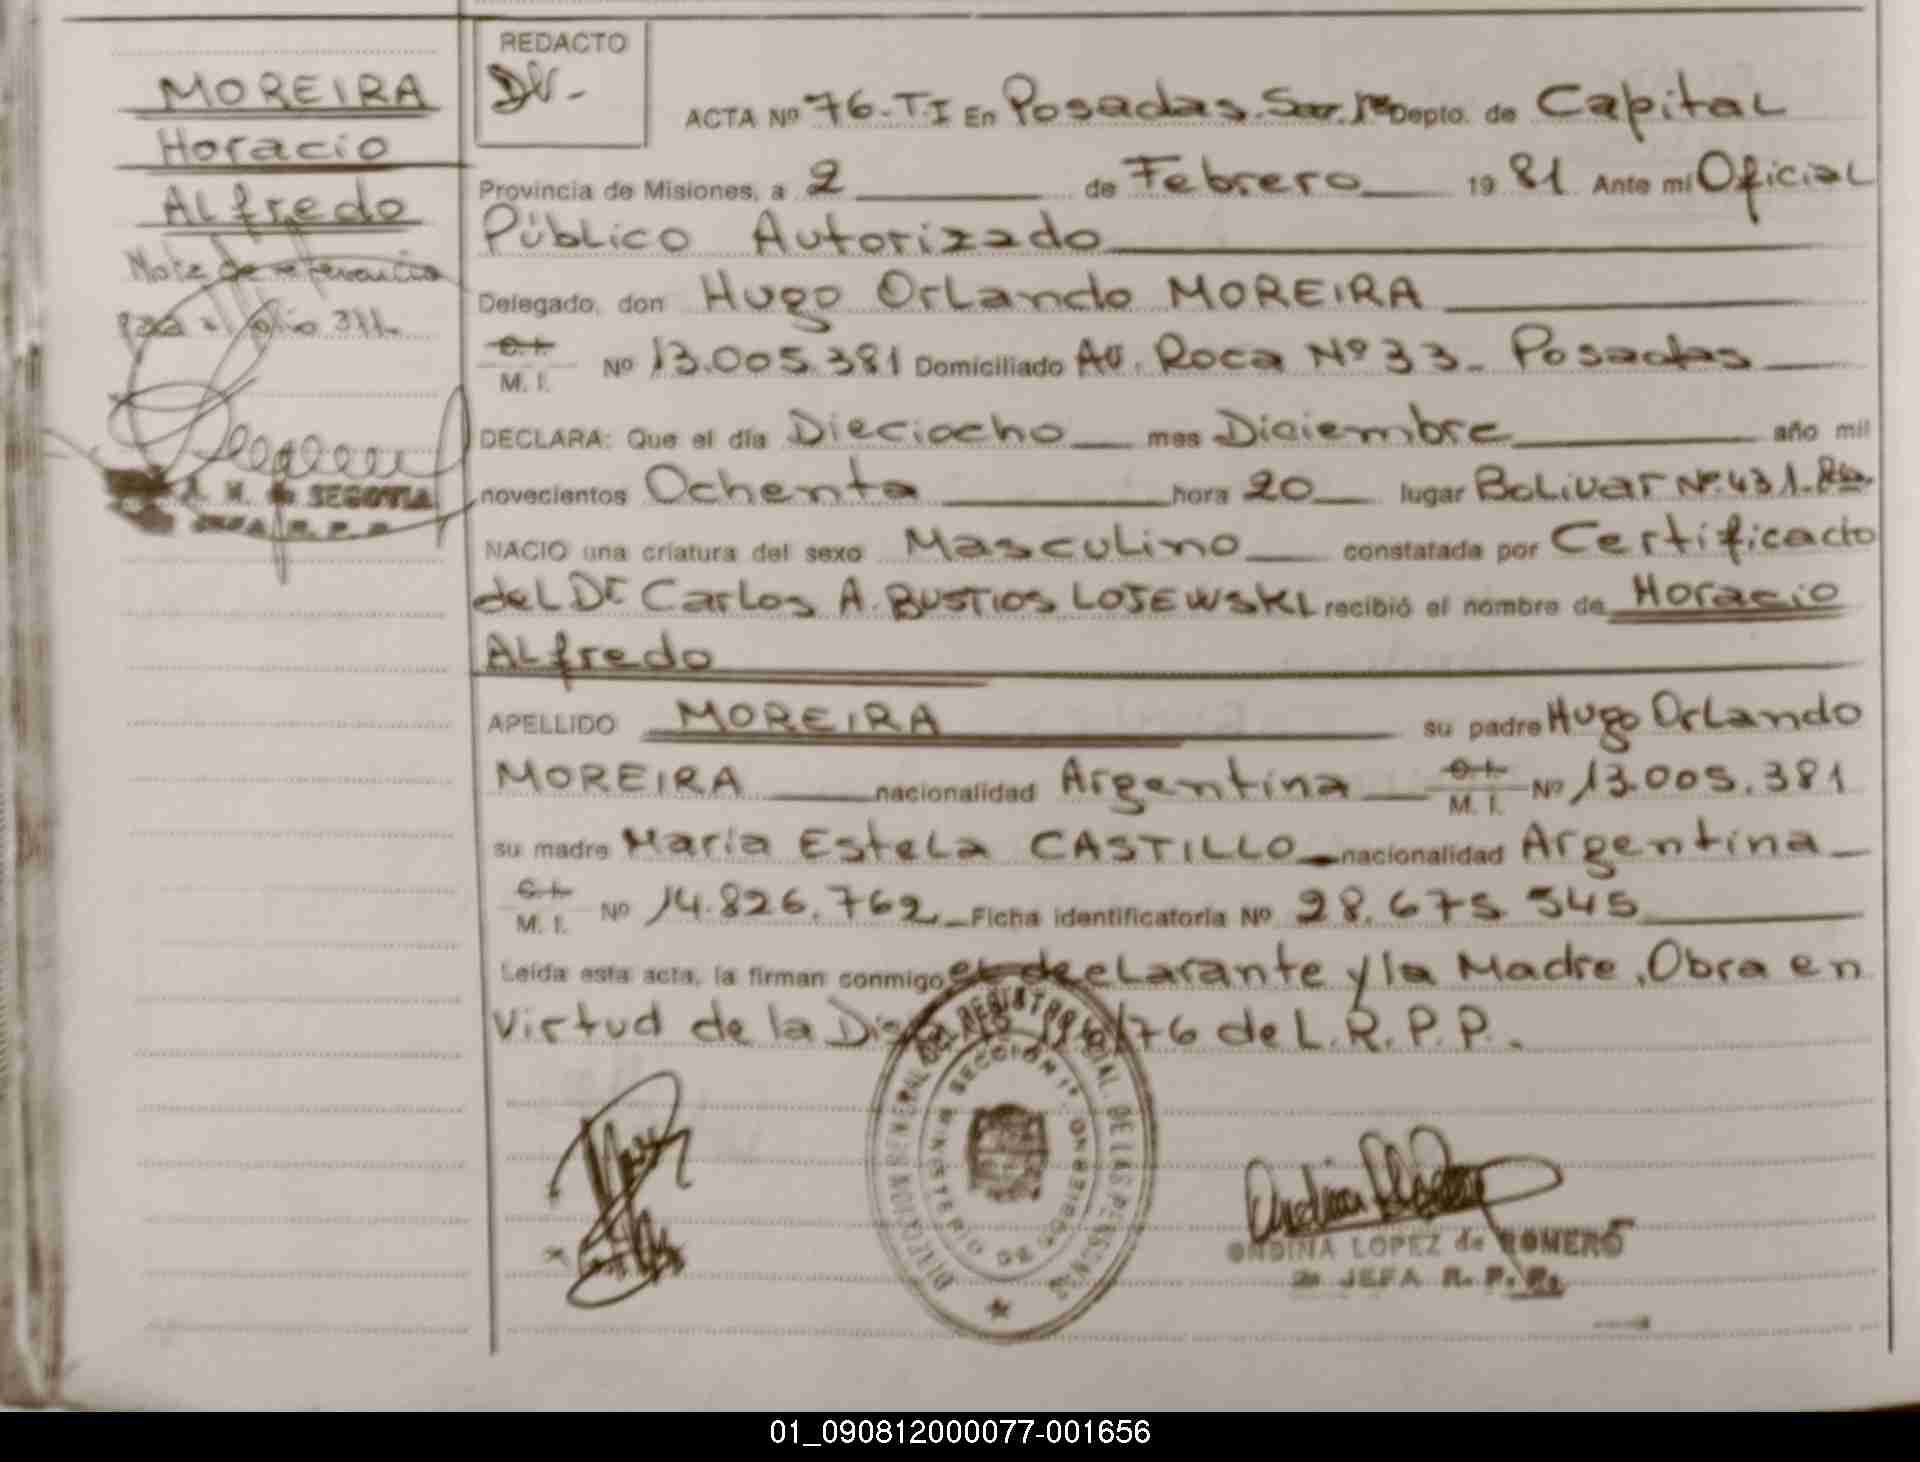 MOREIRA
Horacio
Alfredo
Nota de referencia
para el folio 311.
A. M. de SEGOVIA
JEFA R. P. P.
REDACTO
ACTA Nº 76-T.I En Posadas. Secc. 1ª Depto. de Capital
Provincia de Misiones, a 2 de Febrero 19 81 Ante mí Oficial
Público Autorizado
Delegado, don Hugo Orlando MOREIRA
C. I. M. I. Nº 13.005.381 Domiciliado Av. Roca Nº 33- Posadas
DECLARA: Que el día Dieciocho mes Diciembre año mil
novecientos Ochenta hora 20 lugar Bolivar Nº. 431-Pdas.
NACIO una criatura del sexo Masculino constatada por Certificado
del Dr Carlos A. BUSTIOS LOJEWSKI recibió el nombre de Horacio
Alfredo
APELLIDO MOREIRA su padre Hugo Orlando
MOREIRA nacionalidad Argentina C. I. M. I. Nº 13.005.381
su madre María Estela CASTILLO nacionalidad Argentina
C. I. M. I. Nº 14.826.762 Ficha identificatoria Nº 28.675.545
Leída esta acta, la firman conmigo el declarante y la Madre, Obra en
Virtud de la Disp. Nº /76 de L.R.P.P.
DIRECCION GENERAL DEL REGISTRO PROVINCIAL DE LAS PERSONAS
MINISTERIO DE GOBIERNO SECCION 1ª
ONDINA LOPEZ de ROMERO
2a JEFA R. P. P.
01_090812000077-001656